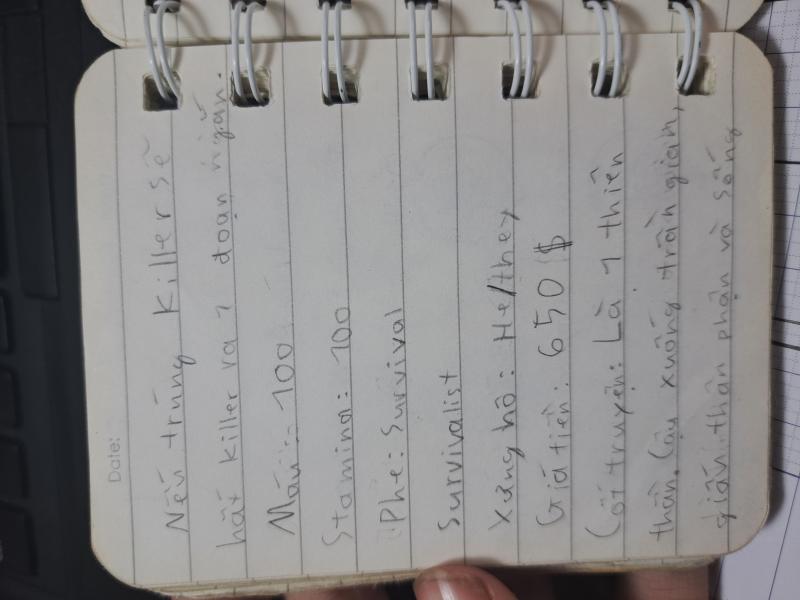 Date:
Nếu trúng Killer sẽ
hất Killer ra 1 đoạn ngắn.
Máu: 100
Stamina: 100
Phe: Survival
Survivalist
Xưng hô: He/they
Giá tiền: 650$
Cốt truyện: Là 1 thiên
thần. Cậu xuống trần gian,
giấu thân phận và sống